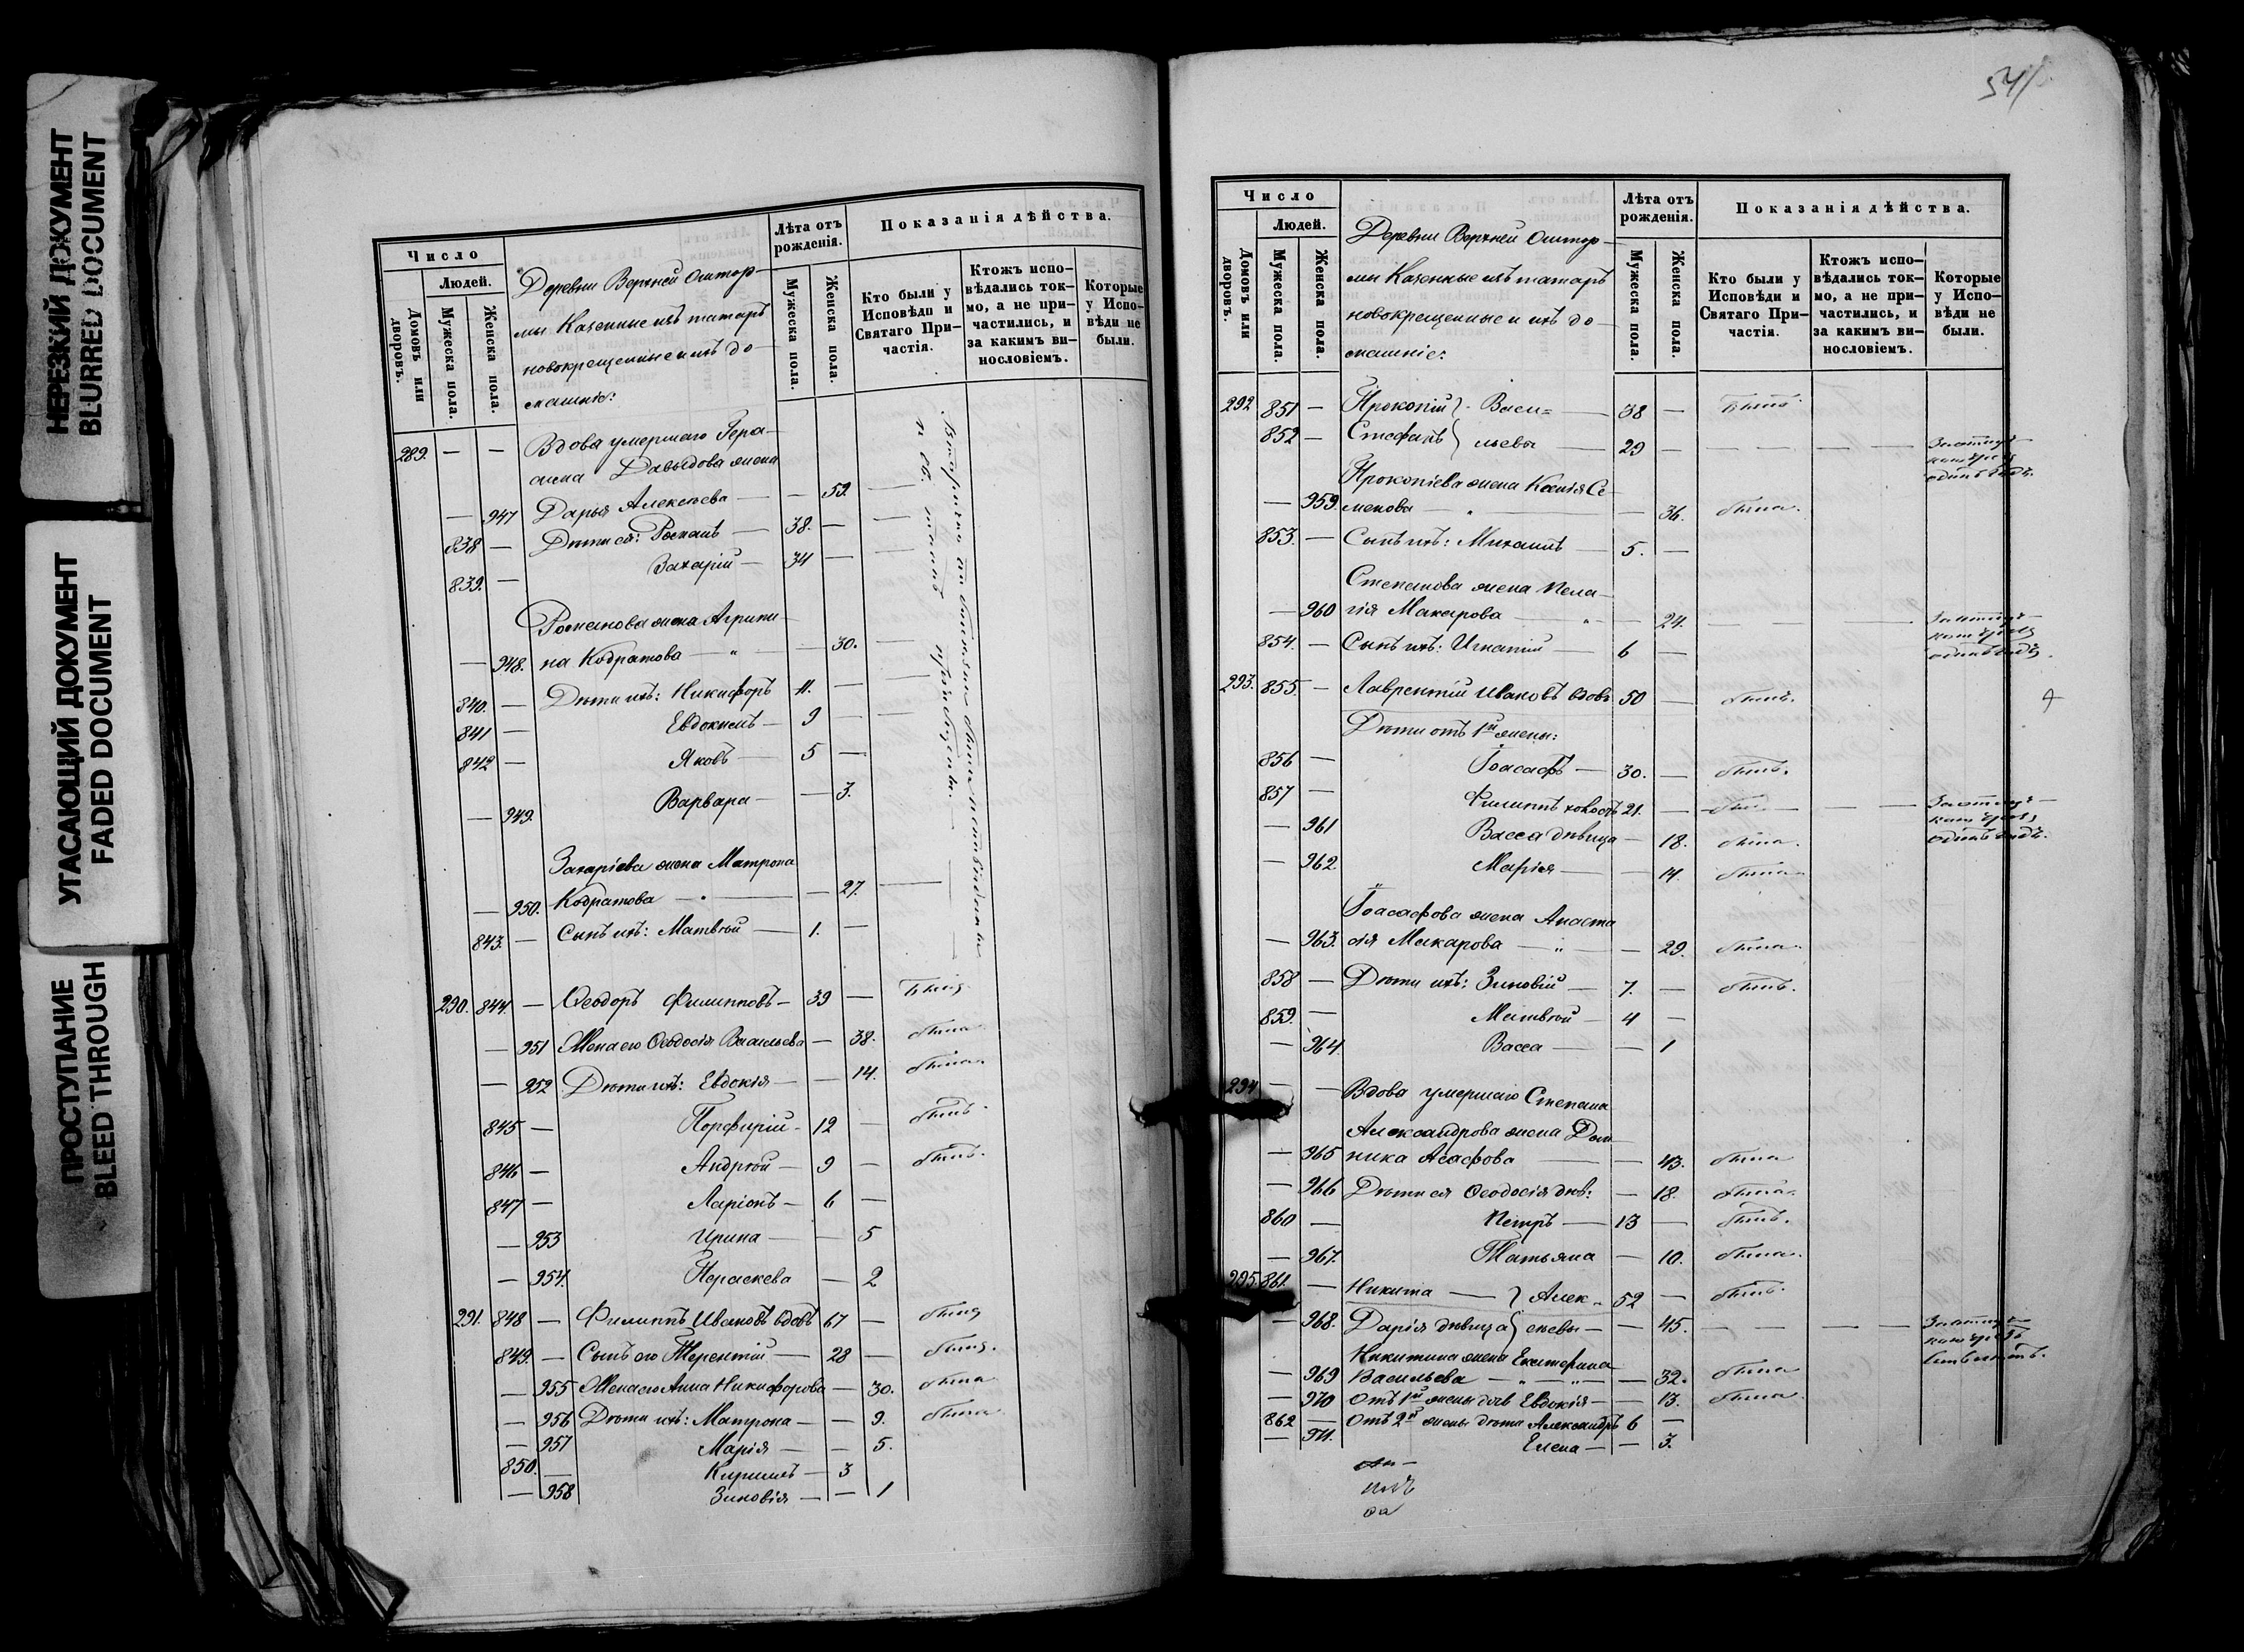 НЕРЕЗКИЙ ДОКУМЕНТ
BLURRED DOCUMENT
УГАСАЮЩИЙ ДОКУМЕНТ
FADED DOCUMENT
ПРОСТУПАНИЕ
BLEED THROUGH
Число
Людей.
Домовъ или дворовъ.
Мужеска пола.
Женска пола.
Деревни Верхней Оштор-
мы Казенные изъ татаръ
новокрещенные и ихъ до-
машніе:
Лѣта отъ рожденія.
Мужеска пола.
Женска пола.
Показанія дѣйства.
Кто были у Исповѣди и Святаго При-частія.
Ктожъ испо-вѣдались ток-мо, а не при-частились, и за какимъ ви-нословіемъ.
Которые у Испо-вѣди не были.
289. — — Вдова умершаго Гера-
сима Давыдова жена
— 947 Дарья Алексѣева — — 59. —
838 — Дѣти ея: Романъ — 38. — —
839. — Захарій — 34 — —
Романова жена Агрипи-
— 948. на Кодратова — „ — — 30. —
840. — Дѣти ихъ: Никифоръ 11. — —
841 — Евдокимъ — 9 — —
842 — Яковъ — 5 —
— 949. Варвара — — 3.
Захаріева жена Матрона
— 950. Кодратова — — 27. —
843. — Сынъ ихъ: Матвѣй — 1. —
290. 844. — Ѳеодоръ Филипповъ — 39 — Былъ
— 951 Жена его Ѳеодосія Васильева — 38. была
— 952 Дѣти ихъ: Евдокія — — 14. была
845 — Порфирій — 12 — былъ.
846 — Андрѣй — 9 — былъ.
847 — Ларіонъ — 6 —
— 953 Ирина — — 5
— 954. Параскева — 2
291. 848 — Филиппъ Ивановъ вдовъ 67 — былъ
849. — Сынъ его Терентій — 28 — былъ.
— 955 Жена его Анна Никифорова — 30. была
— 956 Дѣти ихъ: Матрона — — 9. была
— 957 Марія — — 5.
850. — Кирилъ — 3
— 958 Зиновія — — 1
Число
Людей.
Домовъ или дворовъ.
Мужеска пола.
Женска пола.
Деревни Верхней Оштор-
мы Казенные изъ татаръ
новокрещенные и ихъ до-
машніе:
Лѣта отъ рожденія.
Мужеска пола.
Женска пола.
Показанія дѣйства.
Кто были у Исповѣди и Святаго При-частія.
Ктожъ испо-вѣдались ток-мо, а не при-частились, и за какимъ ви-нословіемъ.
Которые у Испо-вѣди не были.
292 851 — Прокопій } Васи= — 38 — Былъ
852 — Стефанъ } льевы — 29 — — — —
Прокопіева жена Ксенія Се-
— 959. менова — „ — — 36. была.
853. — Сынъ ихъ: Михаилъ — 5. —
Степанова жена Пела-
— 960 гія Макарова — „ — 24. — — —
854. — Сынъ ихъ: Игнатій — 6 —
293. 855. — Лаврентій Ивановъ вдовъ 50 — былъ.
Дѣти отъ 1й жены:
856 — Іоасафъ — 30. — былъ.
857 — Филиппъ холостъ 21. —
— 961 Васса дѣвица — 18. была.
— 962 Марія — — 14. была
Іоасафова жена Анаста
— 963. сія Макарова — „ — 29. была.
858 — Дѣти ихъ: Зиновій — 7. — былъ.
859. — Матвѣй — 4 —
— 964 Васса — — 1
294 — — Вдова умершаго Степана
Александрова жена Дом-
— 965 ника Асафова — — 43. была
— 966 Дѣти ея Ѳеодосія дѣв: — 18. была.
860 — Петръ — 13 — былъ.
— 967. Татьяна — 10. была.
295. 861. — Никита — } Алек- 52 — былъ.
— 968. Дарія дѣвица } сѣевы — — 45. — — —
Никитина жена Екатерина
— 969 Васильева — „ — „ — — 32. была
— 970 Отъ 1й жены дочь Евдокія — — 13. была
862 — Отъ 2й жены дѣти Александръ 6 —
— 971. Елена — — 3.